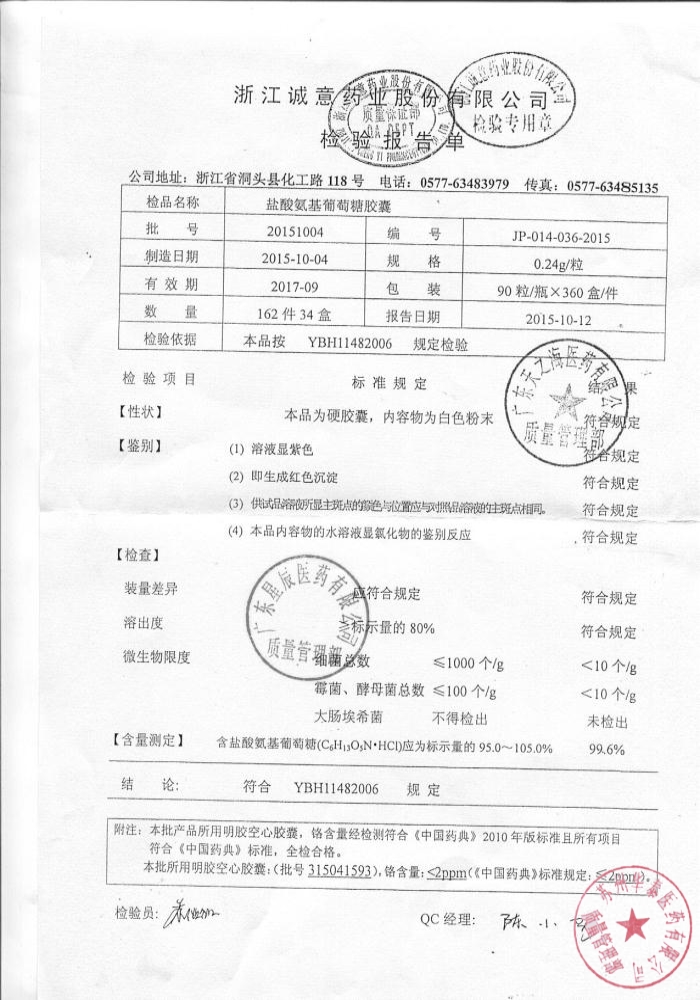 浙江诚意药业股份有限公司
检验报告单
质量保证部
QA DEPT
检验专用章
公司地址：浙江省洞头县化工路 118 号 电话：0577-63483979 传真：0577-63485135
检品名称 盐酸氨基葡萄糖胶囊
批 号 20151004 编 号 JP-014-036-2015
制造日期 2015-10-04 规 格 0.24g/粒
有 效 期 2017-09 包 装 90 粒/瓶×360 盒/件
数 量 162 件 34 盒 报告日期 2015-10-12
检验依据 本品按 YBH11482006 规定检验
检 验 项 目 标 准 规 定 结 果
广东天之海医药有限公司
质量管理部
【性状】 本品为硬胶囊，内容物为白色粉末 符合规定
【鉴别】 (1) 溶液显紫色 符合规定
(2) 即生成红色沉淀 符合规定
(3) 供试品溶液所显主斑点的颜色与位置应与对照品溶液的主斑点相同。 符合规定
(4) 本品内容物的水溶液显氯化物的鉴别反应 符合规定
【检查】
装量差异 应符合规定 符合规定
溶出度 标示量的 80% 符合规定
广东星辰医药有限公司
质量管理部
微生物限度 细菌总数 ≤1000 个/g ＜10 个/g
霉菌、酵母菌总数 ≤100 个/g ＜10 个/g
大肠埃希菌 不得检出 未检出
【含量测定】 含盐酸氨基葡萄糖(C₆H₁₃O₅N·HCl)应为标示量的 95.0～105.0% 99.6%
结 论: 符合 YBH11482006 规 定
附注：本批产品所用明胶空心胶囊，铬含量经检测符合《中国药典》2010 年版标准且所有项目
符合《中国药典》标准，全检合格。
本批所用明胶空心胶囊：(批号 315041593)，铬含量：≤2ppm(《中国药典》标准规定：≤2ppm)。
检验员: QC 经理: 陈 小
质量管理部